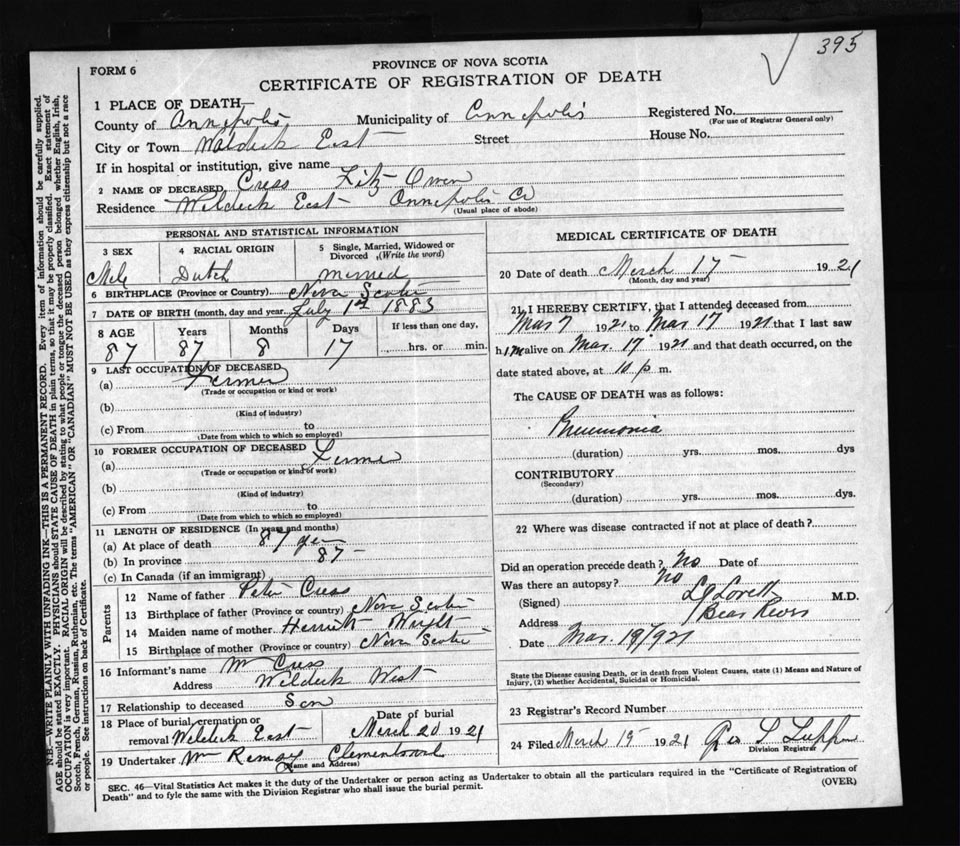 395
PROVINCE OF NOVA SCOTIA
FORM 6
CERTIFICATE OF REGISTRATION OF DEATH
1 PLACE OF DEATH
County of Annapolis Municipality of Annapolis Registered No.
(For use of Registrar General only)
City or Town Waldeck East Street House No.
If in hospital or institution, give name
2 NAME OF DECEASED Cress Fitz Owen
Residence Waldeck East Annapolis Co
(Usual place of abode)
PERSONAL AND STATISTICAL INFORMATION
3 SEX 4 RACIAL ORIGIN 5 Single, Married, Widowed or Divorced (Write the word)
Male Dutch married
6 BIRTHPLACE (Province or Country) Nova Scotia
7 DATE OF BIRTH (month, day and year) July 1st 1883
8 AGE Years Months Days If less than one day,
87 87 8 17 hrs. or min.
9 LAST OCCUPATION OF DECEASED
(a) Farmer
(Trade or occupation or kind or work)
(b)
(Kind of industry)
(c) From to
(Date from which to which so employed)
10 FORMER OCCUPATION OF DECEASED
(a) Farmer
(Trade or occupation or kind of work)
(b)
(Kind of industry)
(c) From to
(Date from which to which so employed)
11 LENGTH OF RESIDENCE (In years and months)
(a) At place of death 87
(b) In province 87
(c) In Canada (if an immigrant)
Parents
12 Name of father Peter Cress
13 Birthplace of father (Province or country) Nova Scotia
14 Maiden name of mother Harriett Wright
15 Birthplace of mother (Province or country) Nova Scotia
16 Informant's name Wm Cress
Address Waldeck West
17 Relationship to deceased Son
18 Place of burial, cremation or removal Waldeck East Date of burial March 20 1921
19 Undertaker Wm Clementsvale
(Name and Address)
MEDICAL CERTIFICATE OF DEATH
20 Date of death March 17 1921
(Month, day and year)
21 I HEREBY CERTIFY, that I attended deceased from
Mar 7 1921 to Mar 17 1921 that I last saw
him alive on Mar. 17 1921 and that death occurred, on the
date stated above, at 10 p m.
The CAUSE OF DEATH was as follows:
Pneumonia
(duration) yrs. mos. dys
CONTRIBUTORY
(Secondary)
(duration) yrs. mos. dys.
22 Where was disease contracted if not at place of death?
Did an operation precede death? No Date of
Was there an autopsy? No
(Signed) Lovett M.D.
Address Bear River
Date Mar. 19/921
State the Disease causing Death, or in death from Violent Causes, state (1) Means and Nature of
Injury, (2) whether Accidental, Suicidal or Homicidal.
23 Registrar's Record Number
24 Filed March 19 1921 Geo L
Division Registrar
SEC. 46—Vital Statistics Act makes it the duty of the Undertaker or person acting as Undertaker to obtain all the particulars required in the "Certificate of Registration of
Death" and to fyle the same with the Division Registrar who shall issue the burial permit. (OVER)
N.B.—WRITE PLAINLY WITH UNFADING INK—THIS IS A PERMANENT RECORD. Every item of information should be carefully supplied.
AGE should be stated EXACTLY. PHYSICIANS should STATE CAUSE OF DEATH in plain terms, so that it may be properly classified. Exact statement of
OCCUPATION is very important. RACIAL ORIGIN will be described by stating to what people or tongue the deceased person belonged whether English, Irish,
Scotch, French, German, Russian, Ruthenian, etc. The terms "AMERICAN" or "CANADIAN" MUST NOT BE USED as they express citizenship but not a race
or people. See instructions on back of Certificate.